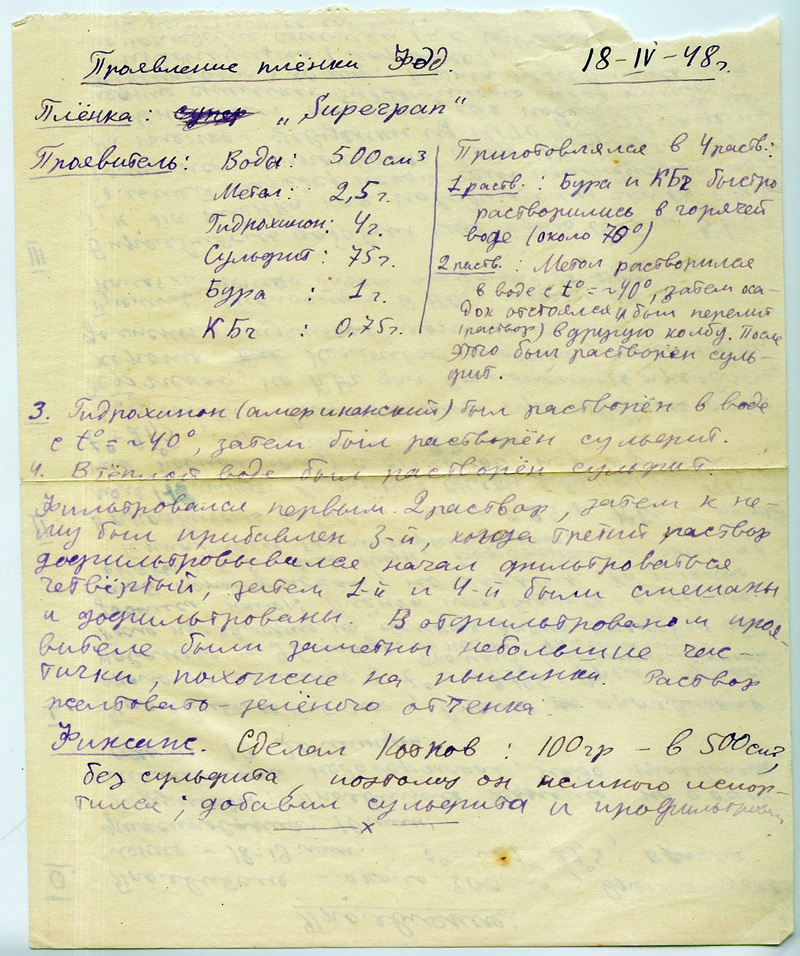 Проявление плёнки Фэд.
18-IV-48г.
Плёнка: супер „Superpan“
Проявитель: Воды: 500см³
Метол: 2,5г.
Гидрохинон: 4г.
Сульфит: 75г.
Бура : 1г.
КБг : 0,75г.
Приготовлялся в 4 раств.:
1 раств.: Бура и КБг быстро
растворились в горячей
воде (около 70°)
2 раств.: Метол растворился
в воде с t°=~40°, затем оса-
док отстоялся и был перелит
(раствор) в другую колбу. После
этого был растворён суль-
фит.
3. Гидрохинон (американский) был растворён в воде
с t°=~40°, затем был растворён сульфит.
4. В тёплой воде был растворён сульфит.
Фильтровался первым 2 раствор, затем к не-
му был прибавлен 3-й, когда третий раствор
дофильтровывался начал фильтроваться
четвёртый, затем 1-й и 4-й были смешаны
и дофильтрованы. В отфильтрованом проя-
вителе были заметны небольшие час-
тички, похожие на пылинки. Раствор
желтовато-зелёного оттенка.
Фиксаж. Сделал Котков: 100гр - в 500см³,
без сульфита, поэтому он немного испор-
тился; добавил сульфита и профильтровал
x